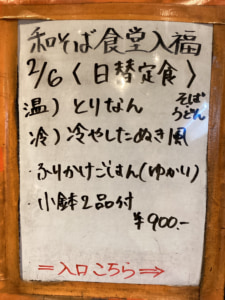 和そば食堂入福
2/6〈日替定食〉
温)とりなん そば うどん
冷)冷やしたぬき風
・ふりかけごはん(ゆかり)
・小鉢2品付
¥900.-
=入口こちら⇒